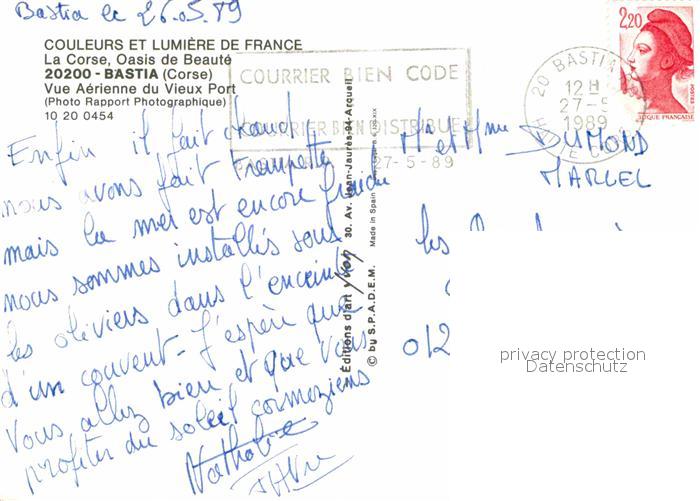 Bastia le 26.05.89
COULEURS ET LUMIÈRE DE FRANCE
La Corse, Oasis de Beauté
20200 - BASTIA (Corse)
Vue Aérienne du Vieux Port
(Photo Rapport Photographique)
10 20 0454
Enfin il fait chaud
nous avons fait trempette
mais la mer est encore fraiche
nous sommes installés sous
les oliviers dans l'enceinte
d'un couvent - J'espère que
Vous allez bien et que Vous
profitez du soleil
Nathalie
COURRIER BIEN CODE
COURRIER BIEN DISTRIBUE
27-5-89
20 BASTIA
12 H
27-5
1989
2,20
POSTES
Editions d'art yvon 30. Av. Jean-Jaurès-94-Arcueil
© by S.P.A.D.E.M. Made in Spain
Mr et Mme DUMOND
MARCEL
les
012
privacy protection
Datenschutz